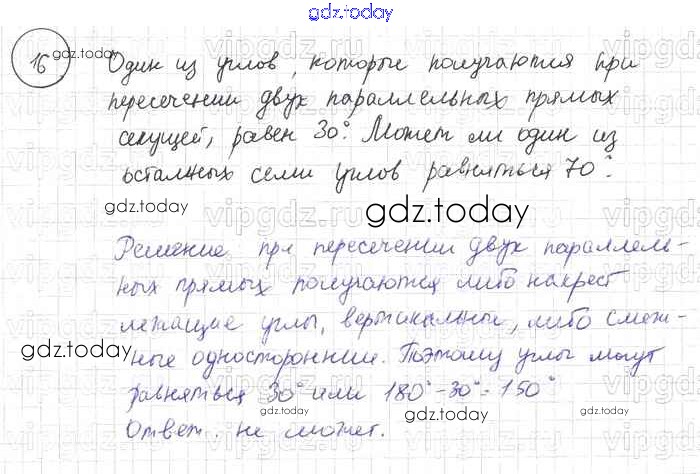 gdz.today
16 Один из углов, которые получаются при
пересечении двух параллельных прямых
секущей, равен 30°. Может ли один из
остальных семи углов равняться 70°.
gdz.today
gdz.today
gdz.today
Решение при пересечении двух параллель-
ных прямых получаются либо накрест
лежащие углы, вертикальные, либо смеж-
gdz.today
ные одностороннии. Поэтому углы могут
равняться 30° или 180°-30°=150°
gdz.today
gdz.today
gdz.today
Ответ. не может.